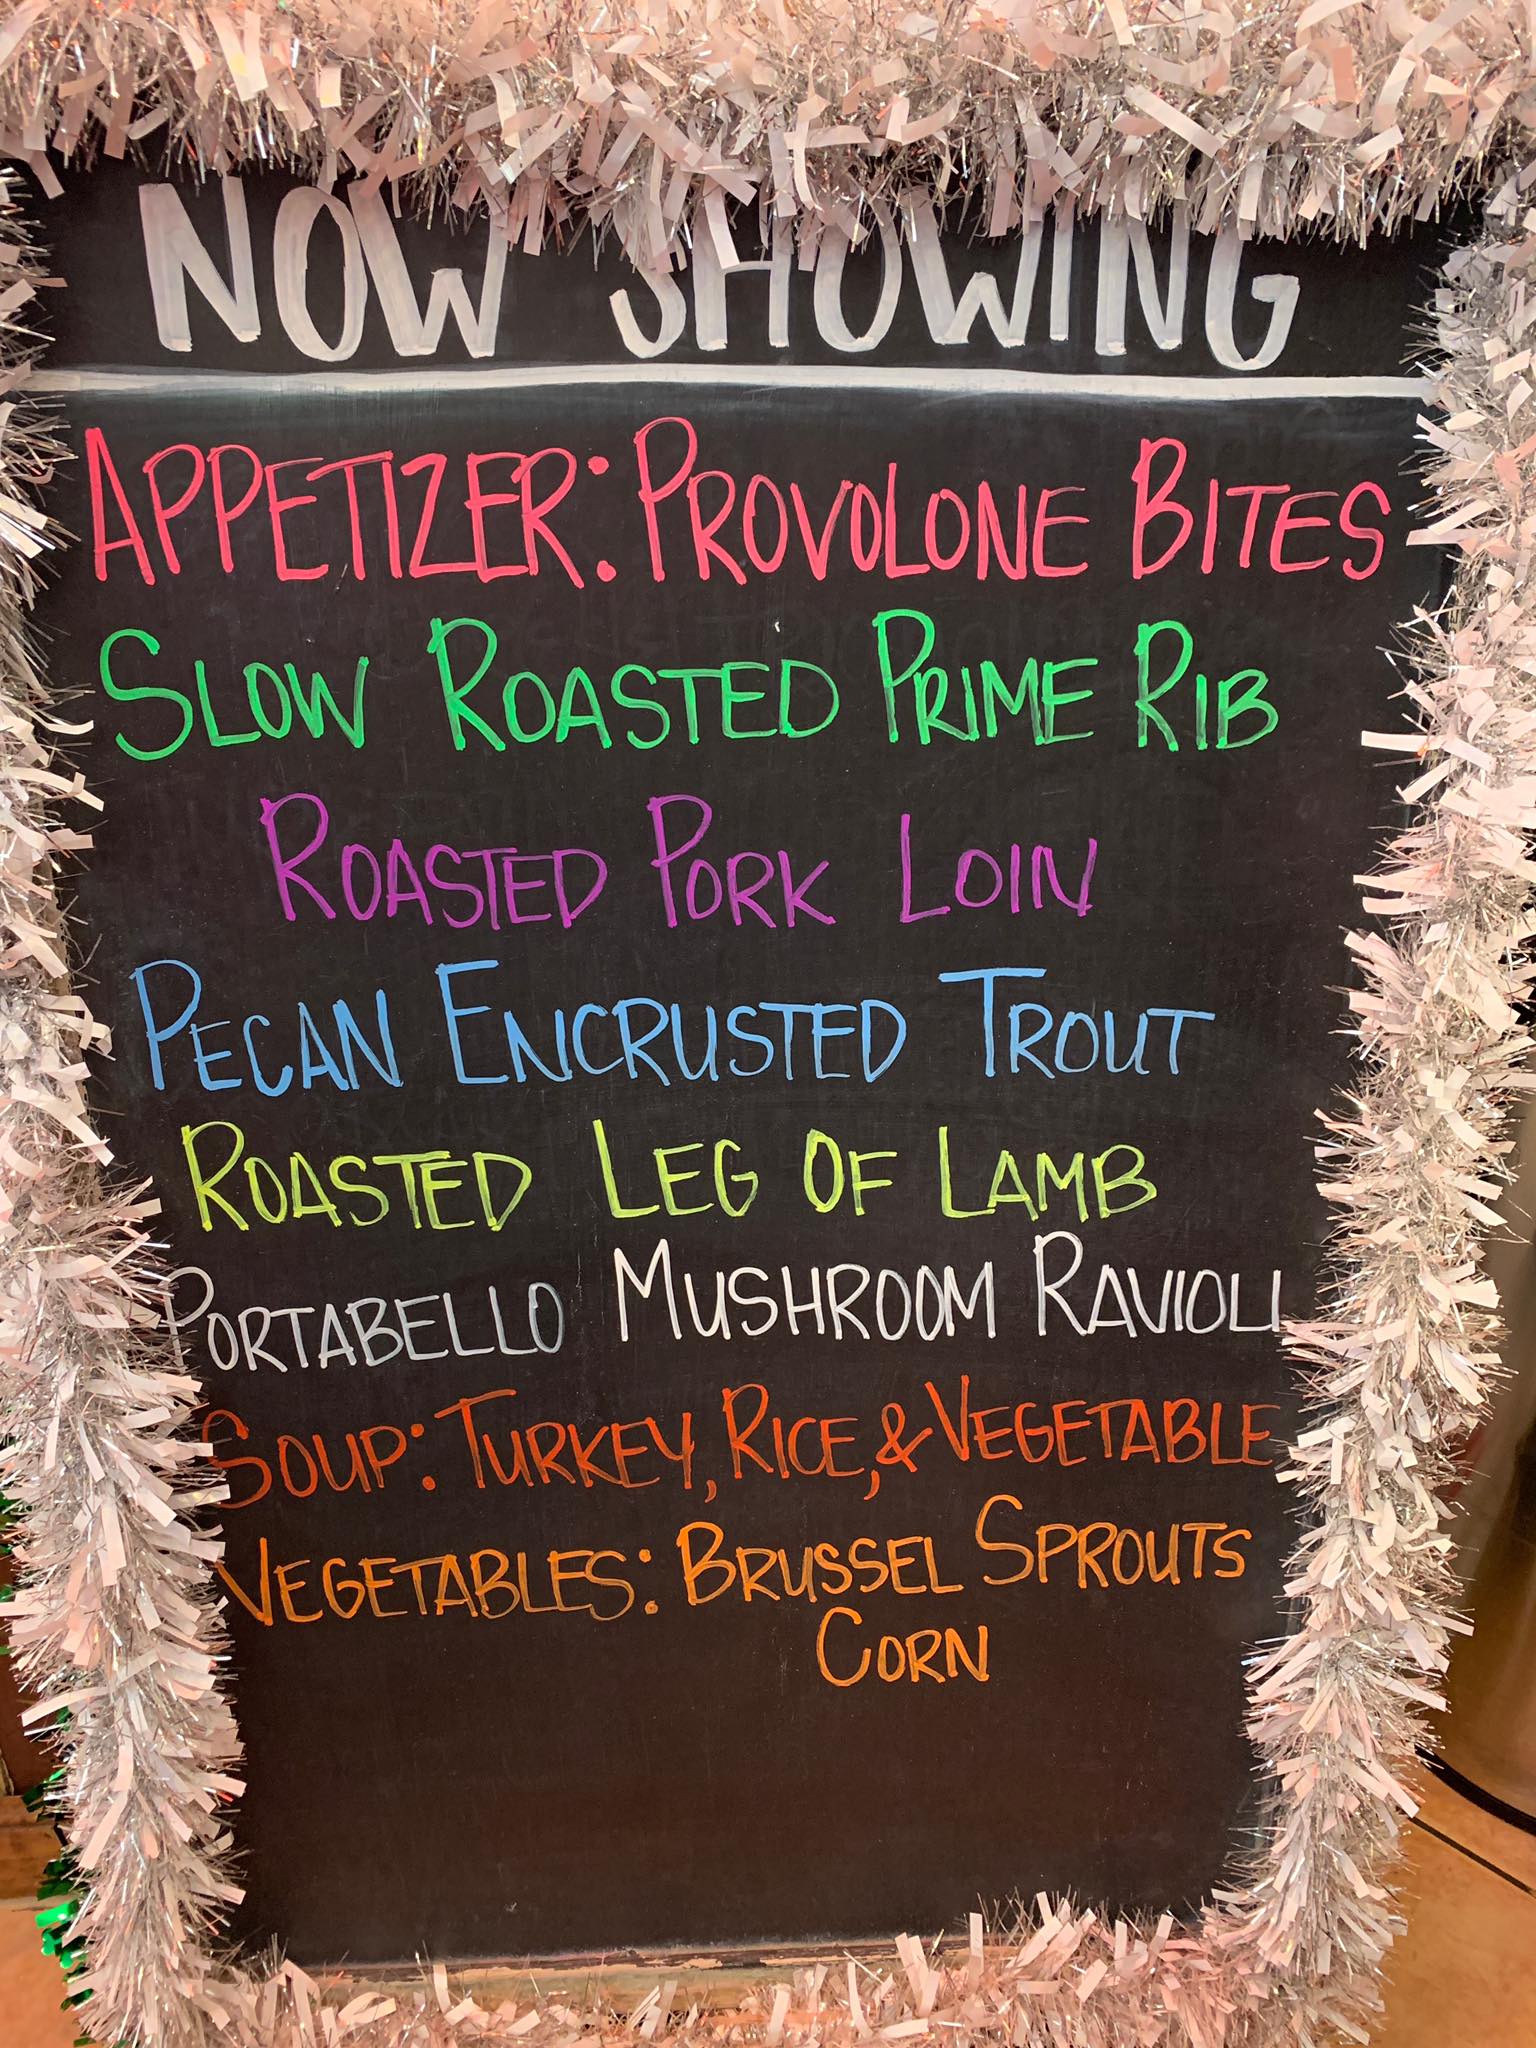 NOW SHOWING
APPETIZER: PROVOLONE BITES
SLOW ROASTED PRIME RIB
ROASTED PORK LOIN
PECAN ENCRUSTED TROUT
ROASTED LEG OF LAMB
PORTABELLO MUSHROOM RAVIOLI
SOUP: TURKEY, RICE, & VEGETABLE
VEGETABLES: BRUSSEL SPROUTS
CORN